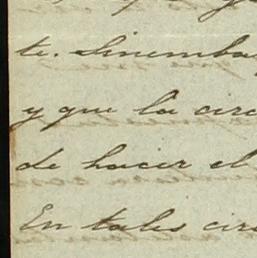 te. Sinemba
y que la circ
de hacer el
En tales cir